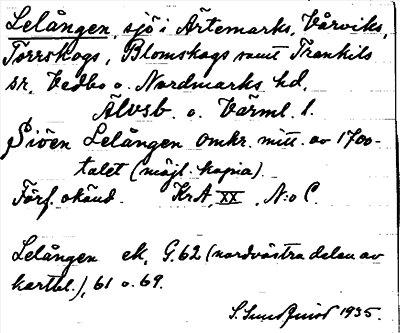 Lelången, sjö i Ärtemarks, Vårviks,
Torrskogs, Blomskogs samt Trankils
sn, Vedbo o. Nordmarks hd,
Älvsb. o. Värml. l.
Siöen Lelången omkr. mitt. av 1700-
talet (möjl. kopia).
Förf. okänd. KrA, XX, N:o C.
Lelången ek. G. 62 (nordvästra delen av
kartbl.), 61 o. 69.
1935.